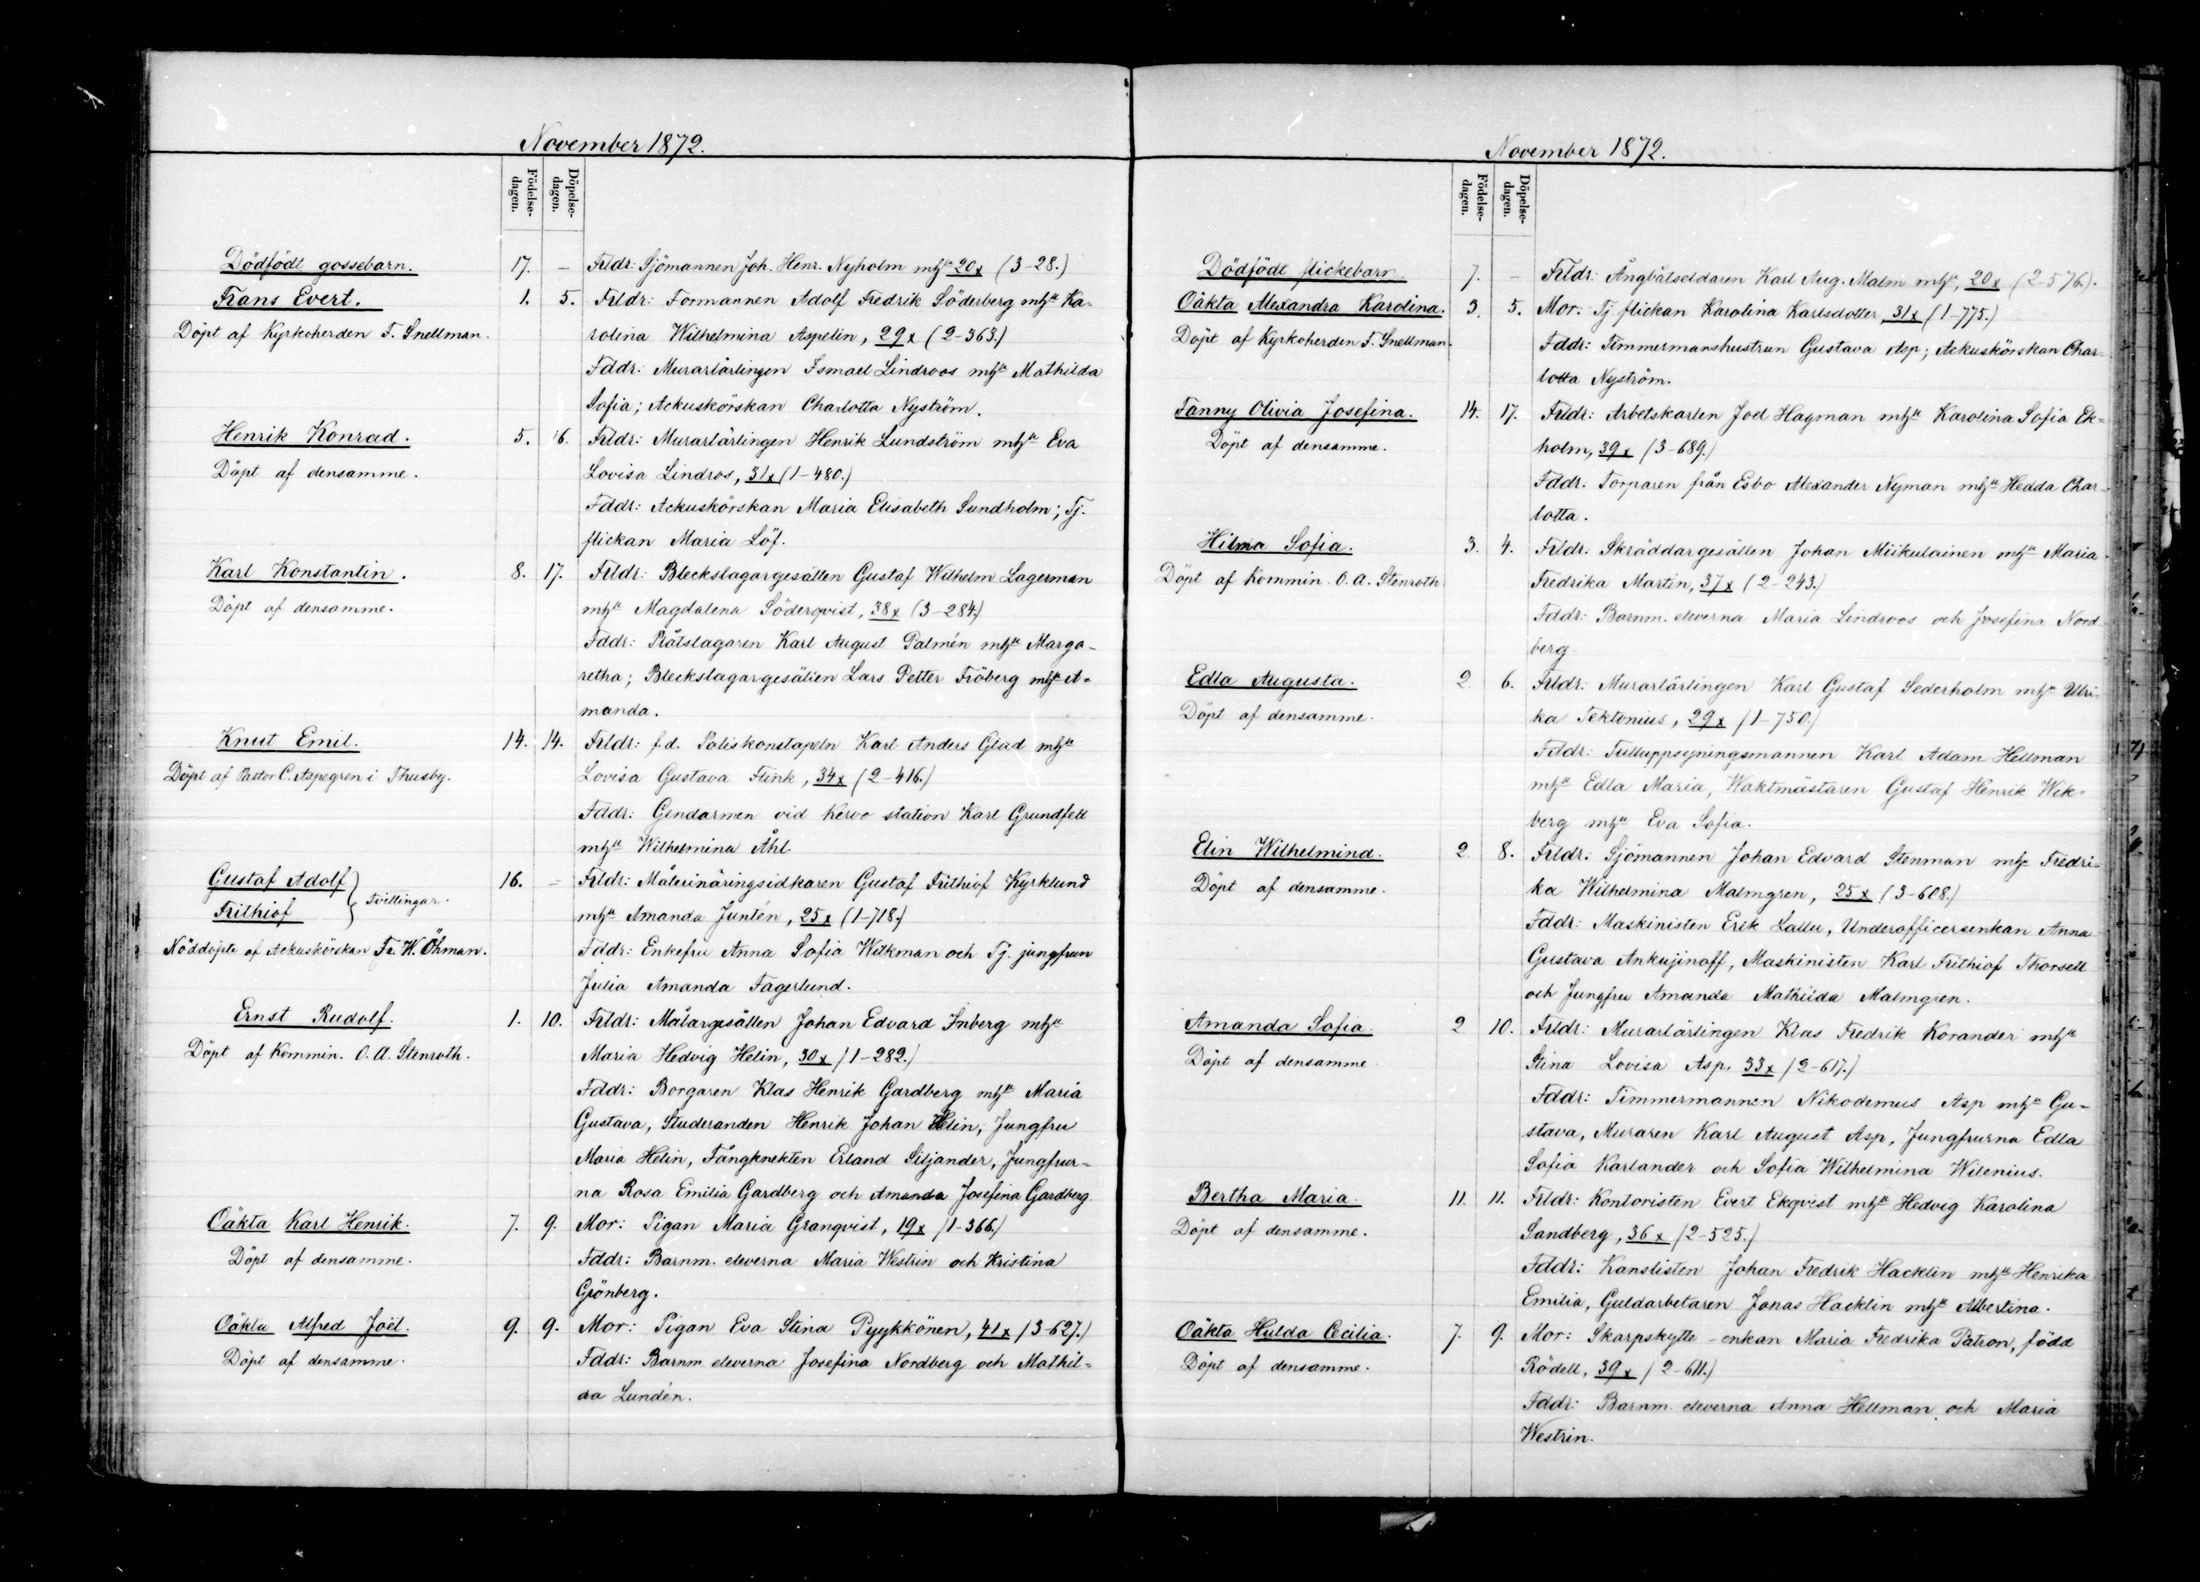 November 1872.
Födelse-
dagen.
Döpelse-
dagen.
Dödfödt gossebarn. 17. – Frldr: Sjömannen Joh. Henr. Nyholm mh 20x (3-28.)
Frans Evert. 1. 5. Frldr: Formannen Adolf Fredrik Söderberg mh Ka-
Döpt af Kyrkoherden F. Snellman. rolina Wilhelmina Aspelin, 29x (2-363.)
Fddr: Murarlärlingen Ismael Lindroos mh Mathilda
Sofia; Ackuskörskan Charlotta Nyström.
Henrik Konrad. 5. 16. Frldr: Murarlärlingen Henrik Lundström mh Eva
Döpt af densamme. Lovisa Lindros, 31x (1-480.)
Fddr: Ackuskörskan Maria Elisabeth Sundholm; Tj.
flickan Maria Löf.
Karl Konstantin. 8. 17. Frldr: Bleckslagargesällen Gustaf Wilhelm Lagerman
Döpt af densamme. mh Magdalena Söderqvist, 38x (3-284.)
Fddr: Plåtslagaren Karl August Palmén mh Marga-
retha; Bleckslagargesällen Lars Petter Fröberg mh A-
manda.
Knut Emil. 14. 14. Frldr: f.d. Poliskonstapeln Karl Anders Glad mh
Döpt af Pastor C. Aspegren i Thusby. Lovisa Gustava Flink, 34x (2-416.)
Fddr: Gendarmen vid Kervo station Karl Grundfelt
mh Wilhelmina Åhl.
Gustaf Adolf } Tvillingar. 16. – Frldr: Målerinäringsidkaren Gustaf Frithiof Kyrklund
Frithiof mh Amanda Juntén, 25x (1-718.)
Nöddöpta af Ackuskörskan Fr. W. Öhman. Fddr: Enkefru Anna Sofia Wilkman och Tj. jungfrun
Julia Amanda Fagerlund.
Ernst Rudolf. 1. 10. Frldr: Målargesällen Johan Edvard Inberg mh
Döpt af Kommin. O. A. Stenroth. Maria Hedvig Helin, 30x (1-282.)
Fddr: Borgaren Klas Henrik Gardberg mh Maria
Gustava, Studeranden Henrik Johan Helin, Jungfru
Maria Helin, Fångknekten Erland Siljander, Jungfrur-
na Rosa Emilia Gardberg och Amanda Josefina Gardberg.
Oäkta Karl Henrik. 7. 9. Mor: Pigan Maria Granqvist, 19x (1-366.)
Döpt af densamme. Fddr: Barnm. eleverna Maria Westrin och Kristina
Grönberg.
Oäkta Alfred Joel. 9. 9. Mor: Pigan Eva Stina Pyykkönen, 41x (3-627.)
Döpt af densamme. Fddr: Barnm eleverna Josefina Nordberg och Mathil-
da Lundén.
November 1872.
Födelse-
dagen.
Döpelse-
dagen.
Dödfödt flickebarn. 7. – Frldr: Ångbåtseldaren Karl Aug. Malm mh, 20x (2-576).
Oäkta Alexandra Karolina. 3. 5. Mor: Tj. flickan Karolina Karlsdotter, 31x (1-775.)
Döpt af Kyrkoherden F. Snellman. Fddr: Timmermanshustrun Gustava Asp; Ackuskörskan Char-
lotta Nyström.
Fanny Olivia Josefina. 14. 17. Frldr: Arbetskarlen Joel Hagman mh Karolina Sofia Ek-
Döpt af densamme. holm, 39x (3-689.)
Fddr. Torparen från Esbo Alexander Nyman mh Hedda Char-
lotta.
Hilma Sofia. 3. 4. Frldr. Skräddargesällen Johan Miikulainen mh Maria
Döpt af Kommin. O. A. Stenroth Fredrika Martin, 37x (2-243.)
Fddr: Barnm. eleverna Maria Lindroos och Josefina Nord-
berg.
Edla Augusta. 2. 6. Frldr: Murarlärlingen Karl Gustaf Sederholm mh Ulri-
Döpt af densamme. ka Tektonius, 29x (1-750.)
Fddr: Tulluppsyningsmannen Karl Adam Hellman
mh Edla Maria, Waktmästaren Gustaf Henrik Wek-
berg mh Eva Sofia.
Elin Wilhelmina. 2. 8. Frldr: Sjömannen Johan Edvard Stenman mh Fredri-
Döpt af densamme. ka Wilhelmina Malmgren, 25x (3-608.)
Fddr: Maskinisten Erik Lallu, Underofficersenkan Anna
Gustava Ankujinoff, Maskinisten Karl Frithiof Thorsell
och Jungfru Amanda Mathilda Malmgren.
Amanda Sofia. 2 10. Frldr: Murarlärlingen Klas Fredrik Korander mh
Döpt af densamme. Stina Lovisa Asp. 33x (2-617.)
Fddr: Timmermannen Nikodemus Asp mh Gu-
stava, Muraren Karl August Asp, Jungfrurna Edla
Sofia Karlander och Sofia Wilhelmina Wilenius.
Bertha Maria. 11. 11. Frldr: Kontoristen Evert Ekqvist mh Hedvig Karolina
Döpt af densamme. Sandberg, 36x (2-525.)
Fddr: Kanslisten Johan Fredrik Hacklin mh Henrika
Emilia, Guldarbetaren Jonas Hacklin mh Albertina.
Oäkta Hulda Cecilia. 7. 9. Mor: Skarpskytte-enkan Maria Fredrika Patron, född
Döpt af densamme. Rödell, 39x (2-611.)
Fddr: Barnm. eleverna Anna Hellman och Maria
Westrin.